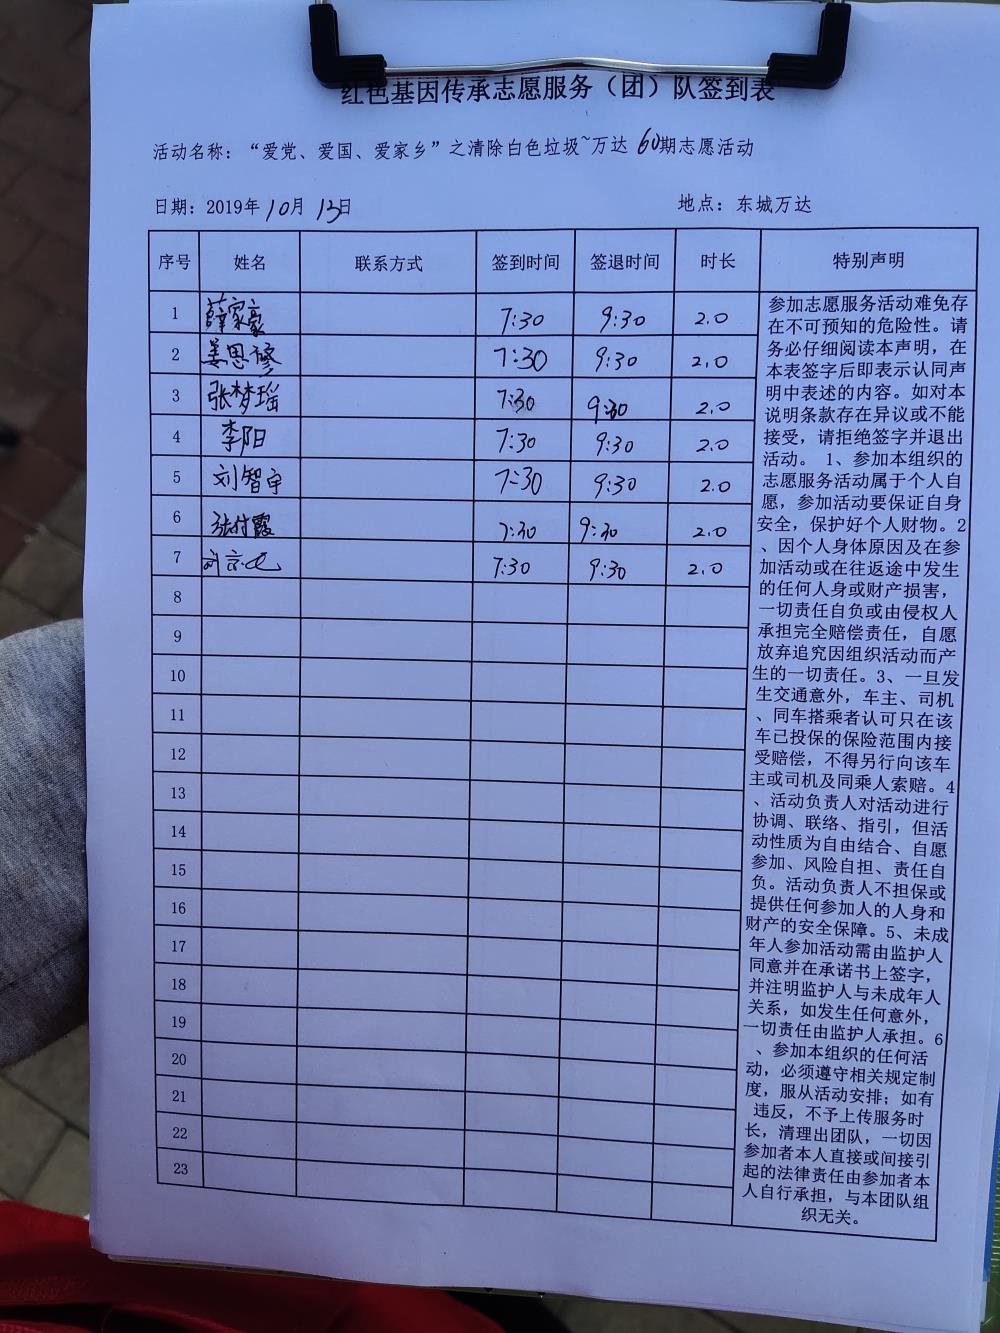 红色基因传承志愿服务（团）队签到表
活动名称：“爱党、爱国、爱家乡”之清除白色垃圾~万达 60期志愿活动
日期：2019年 10月 13日 地点：东城万达
序号 姓名 联系方式 签到时间 签退时间 时长 特别声明
1 薛家豪 7:30 9:30 2.0
2 姜思修 7:30 9:30 2.0
3 张梦瑶 7:30 9:30 2.0
4 李阳 7:30 9:30 2.0
5 刘智宇 7:30 9:30 2.0
6 张付霞 7:30 9:30 2.0
7 7:30 9:30 2.0
8
9
10
11
12
13
14
15
16
17
18
19
20
21
22
23
参加志愿服务活动难免存
在不可预知的危险性。请
务必仔细阅读本声明，在
本表签字后即表示认同声
明中表述的内容。如对本
说明条款存在异议或不能
接受，请拒绝签字并退出
活动。 1、参加本组织的
志愿服务活动属于个人自
愿，参加活动要保证自身
安全，保护好个人财物。2
、因个人身体原因及在参
加活动或在往返途中发生
的任何人身或财产损害，
一切责任自负或由侵权人
承担完全赔偿责任，自愿
放弃追究因组织活动而产
生的一切责任。3、一旦发
生交通意外，车主、司机
、同车搭乘者认可只在该
车已投保的保险范围内接
受赔偿，不得另行向该车
主或司机及同乘人索赔。4
、活动负责人对活动进行
协调、联络、指引，但活
动性质为自由结合、自愿
参加、风险自担、责任自
负。活动负责人不担保或
提供任何参加人的人身和
财产的安全保障。5、未成
年人参加活动需由监护人
同意并在承诺书上签字，
并注明监护人与未成年人
关系，如发生任何意外，
一切责任由监护人承担。6
、参加本组织的任何活
动，必须遵守相关规定制
度，服从活动安排；如有
违反，不予上传服务时
长，清理出团队，一切因
参加者本人直接或间接引
起的法律责任由参加者本
人自行承担，与本团队组
织无关。